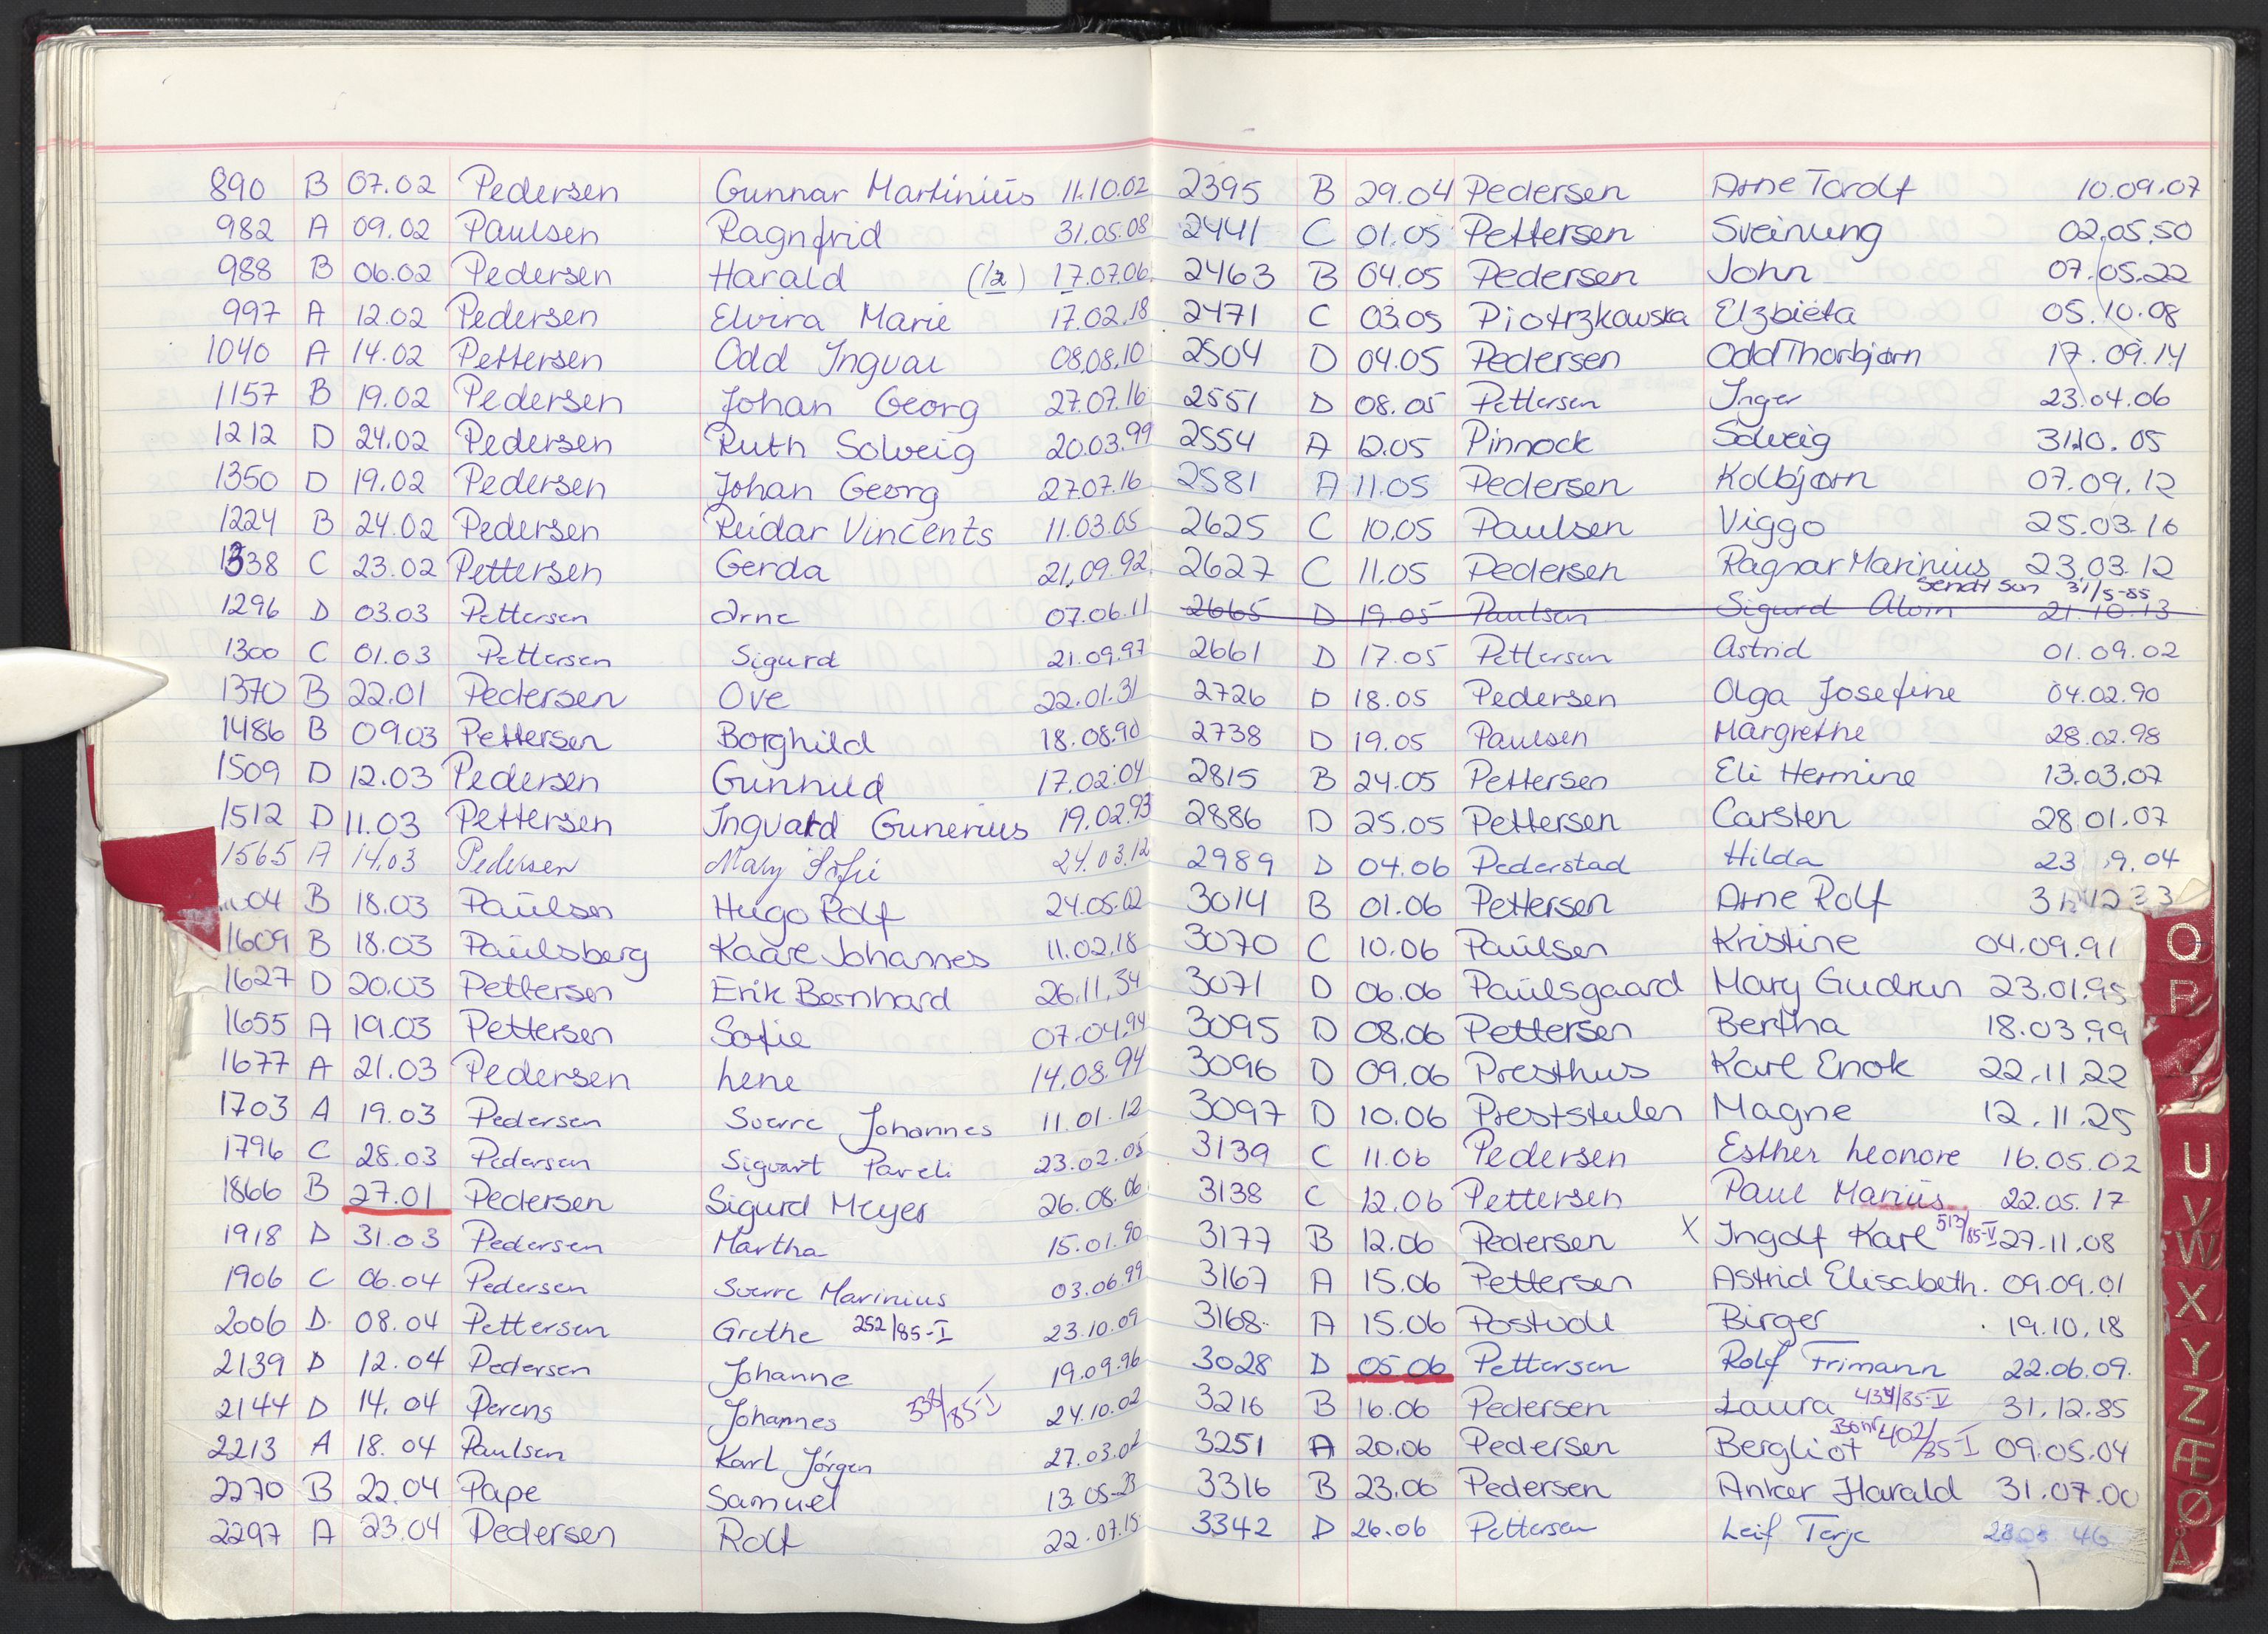 890 B 07.02 Pedersen Gunnar Martinius 11.10.02
982 A 09.02 Paulsen Ragnfrid 31.05.08
988 B 06.02 Pedersen Harald (12) 17.07.06
997 A 12.02 Pedersen Elvira Marie 17.02.18
1040 A 14.02 Pettersen Odd Ingvar 08.08.10
1157 B 19.02 Pedersen Johan Georg 27.07.16
1212 D 24.02 Pedersen Ruth Solveig 20.03.99
1350 D 19.02 Pedersen Johan Georg 27.07.16
1224 B 24.02 Pedersen Reidar Vincents 11.03.05
1338 C 23.02 Pettersen Gerda 21.09.92
1296 D 03.03 Pettersen Arne 07.06.11
1300 C 01.03 Pettersen Sigurd 21.09.97
1370 B 22.01 Pedersen Ove 22.01.31
1486 B 09.03 Pettersen Borghild 18.08.90
1509 D 12.03 Pedersen Gunhild 17.02.04
1512 D 11.03 Pettersen Ingvard Gunerius 19.02.93
1565 A 14.03 Pedersen Mary Sofie 24.03.12
04 B 18.03 Paulsen Hugo Rolf 24.05.02
1609 B 18.03 Paulsberg Kaare Johannes 11.02.18
1627 D 20.03 Pettersen Erik Bernhard 26.11.34
1655 A 19.03 Pettersen Sofie 07.04.94
1677 A 21.03 Pedersen Lene 14.08.94
1703 A 19.03 Pedersen Sverre Johannes 11.01.12
1796 C 28.03 Pedersen Sigvart Pareli 23.02.05
1866 B 27.01 Pedersen Sigurd Meyer 26.08.06
1918 D 31.03 Pedersen Martha 15.01.90
1906 C 06.04 Pedersen Sverre Marinius 03.06.99
2006 D. 08.04 Pettersen Grethe 252/85-I 23.10.09
2139 D 12.04 Pedersen Johanne 19.09.96
2144 D 14.04 Perens Johannes 538/85-I 24.10.02
2213 A 18.04 Paulsen Karl Jörgen 27.03.02
2270 B 22.04 Pape Samuel 13.05-23
2297 A 23.04 Pedersen Rolf 22.07.15
2395 B 29.04 Pedersen Arne Tordf 10.09.07
2441 C 01.05 Pettersen Sveinung 02.05.50
2463 B 04.05 Pedersen John 07.05.22
2471 C 03.05 Piotrzkowska Elzbieta 05.10.08
2504 D 04.05 Pedersen Odd Thorbjørn 17.09.14
2551 D 08.05 Pettersen Inger 23.04.06
2554 A 12.05 Pinnock Solveig 31.10.05
2581 A 11.05 Pedersen Kolbjørn 07.09.12
2625 C 10.05 Paulsen Viggo 25.03.16
2627 C 11.05 Pedersen Ragnar Marinius 23.03.12
Sendt Son 31/5-85
2665 D 19.05 Paulsen Sigurd 21.10.13
2661 D 17.05 Pettersen Astrid 01.09.02
2726 D 18.05 Pedersen Olga Josefine 04.02.90
2738 D 19.05 Paulsen Margrethe 28.02.98
2815 B 24.05 Pettersen Eli Hermine 13.03.07
2886 D 25.05 Pettersen Carsten 28.01.07
2989 D 04.06 Pederstad Hilda 23 9.04
3014 B 01.06 Pettersen Arne Rolf 31.12.33
3070 C 10.06 Paulsen Kristine 04.09.91
3071 D 06.06 Paulsgaard Mary Gudrun 23.01.95
3095 D 08.06 Pettersen Bertha 18.03.99
3096 D 09.06 Presthus Karl Enok 22.11.22
3097 D 10.06 Preststulen Magne 12.11.25
3139 C 11.06 Pedersen Esther Leonore 16.05.02
3138 C 12.06 Pettersen Paul Marius 22.05.17
3177 B 12.06 Pedersen X Ingolf Karl 513/85-V 27.11.08
3167 A 15.06 Pettersen Astrid Elisabeth. 09.09.01
3168. A 15.06 Postvoll Birger 19.10.18
3028 D 05 06 Pettersen Rolf Frimann 22.06.09.
3216 B 16.06 Pedersen Laura 434/85-IV 31.12.85
3251 A 20.06 Pedersen Bergliot Bonr 402/85-I 09.05.04
3316 B 23.06 Pedersen Anker Harald 31.07.00
3342 D 26.06 Pettersen Leif Terje 46
Q
R
U
V
W
X
Y
Z
Æ
Ø
Å